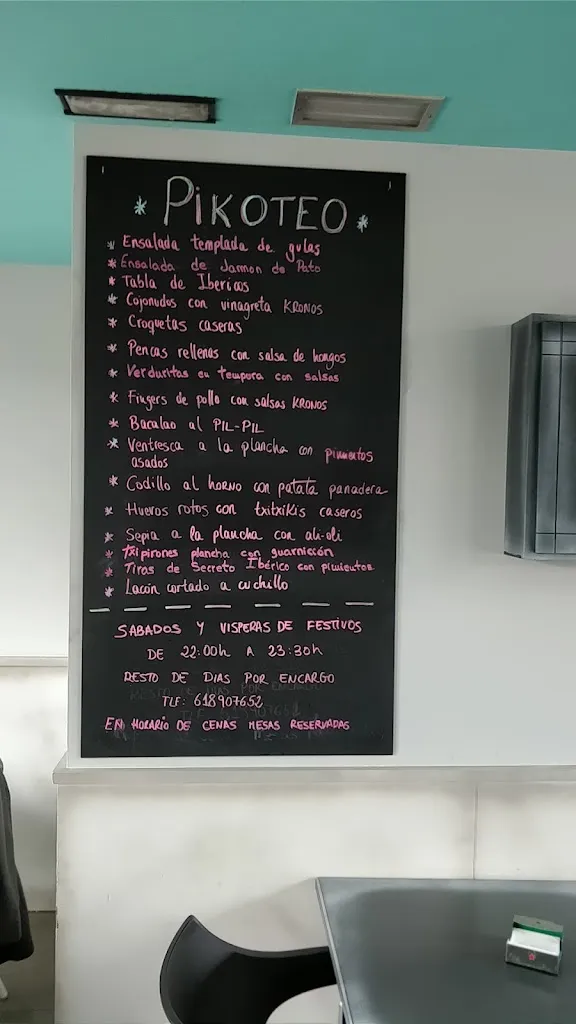 * PiKOTEO *
* Ensalada templada de gulas
* Ensalada de Jamon de Pato
* Tabla de Ibericos
* Cojonudos con vinagreta KRONOS
* Croquetas caseras
* Pencas rellenas con salsa de hongos
* Verduritas en tempora con salsas
* Fingers de pollo con salsas KRONOS
* Bacalao al PIL-PIL
* Ventresca a la plancha con pimientos
asados
* Codillo al horno con patata panadera
* Huevos rotos con txitxikis caseros
* Sepia a la plancha con ali-oli
* Txipirones plancha con guarnición
* Tiras de Secreto Ibérico con pimientos
* Lacón cortado a cuchillo
SABADOS Y VISPERAS DE FESTIVOS
DE 22:00h A 23:30h
RESTO DE DIAS POR ENCARGO
TLF: 618907652
EN HORARIO DE CENAS MESAS RESERVADAS